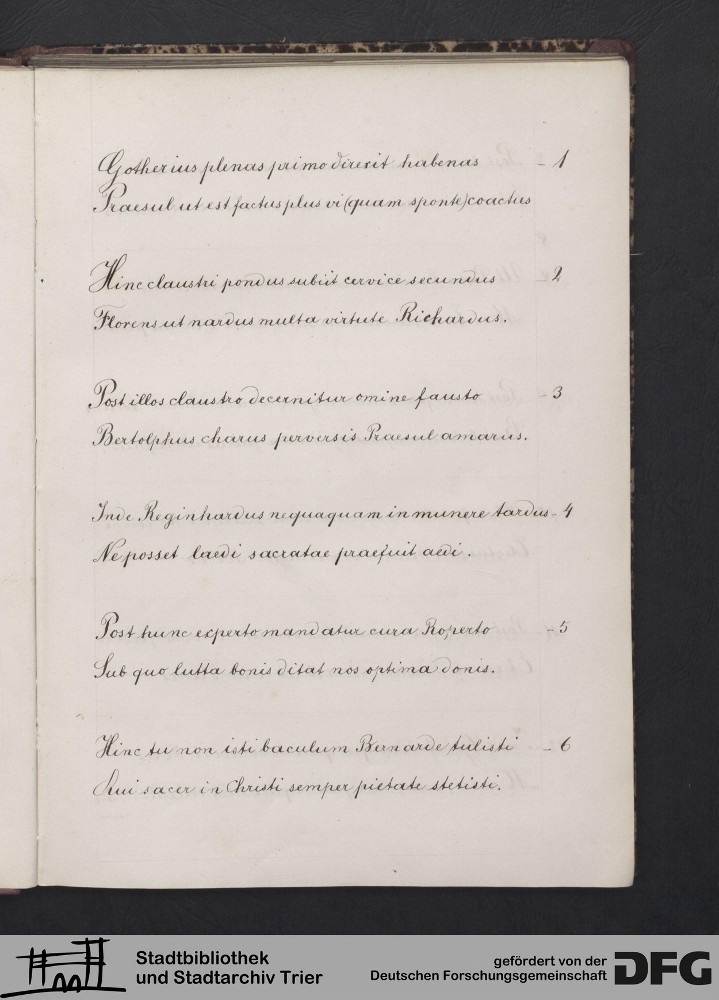 Gotherius plenas primo direxit habenas – 1
Praesul ut est factus plus vi (quam sponte) coactus
Hinc claustri pondus subiit cervice secundus – 2
Florens ut nardus multa virtute Richardus.
Post illos claustro decernitur omine fausto – 3
Bertolphus charus perversis Praesul amarus.
Inde Reginhardus nequaquam in munere tardus – 4
Ne posset laedi sacratae praefuit aedi.
Post hunc experto mandatur cura Roperto – 5
Sub quo lutta bonis ditat nos optima donis.
Hinc tu non isti baculum Bernarde tulisti – 6
Qui sacer in Christi semper pietate stetisti.
Stadtbibliothek
und Stadtarchiv Trier
gefördert von der
Deutschen Forschungsgemeinschaft
DFG